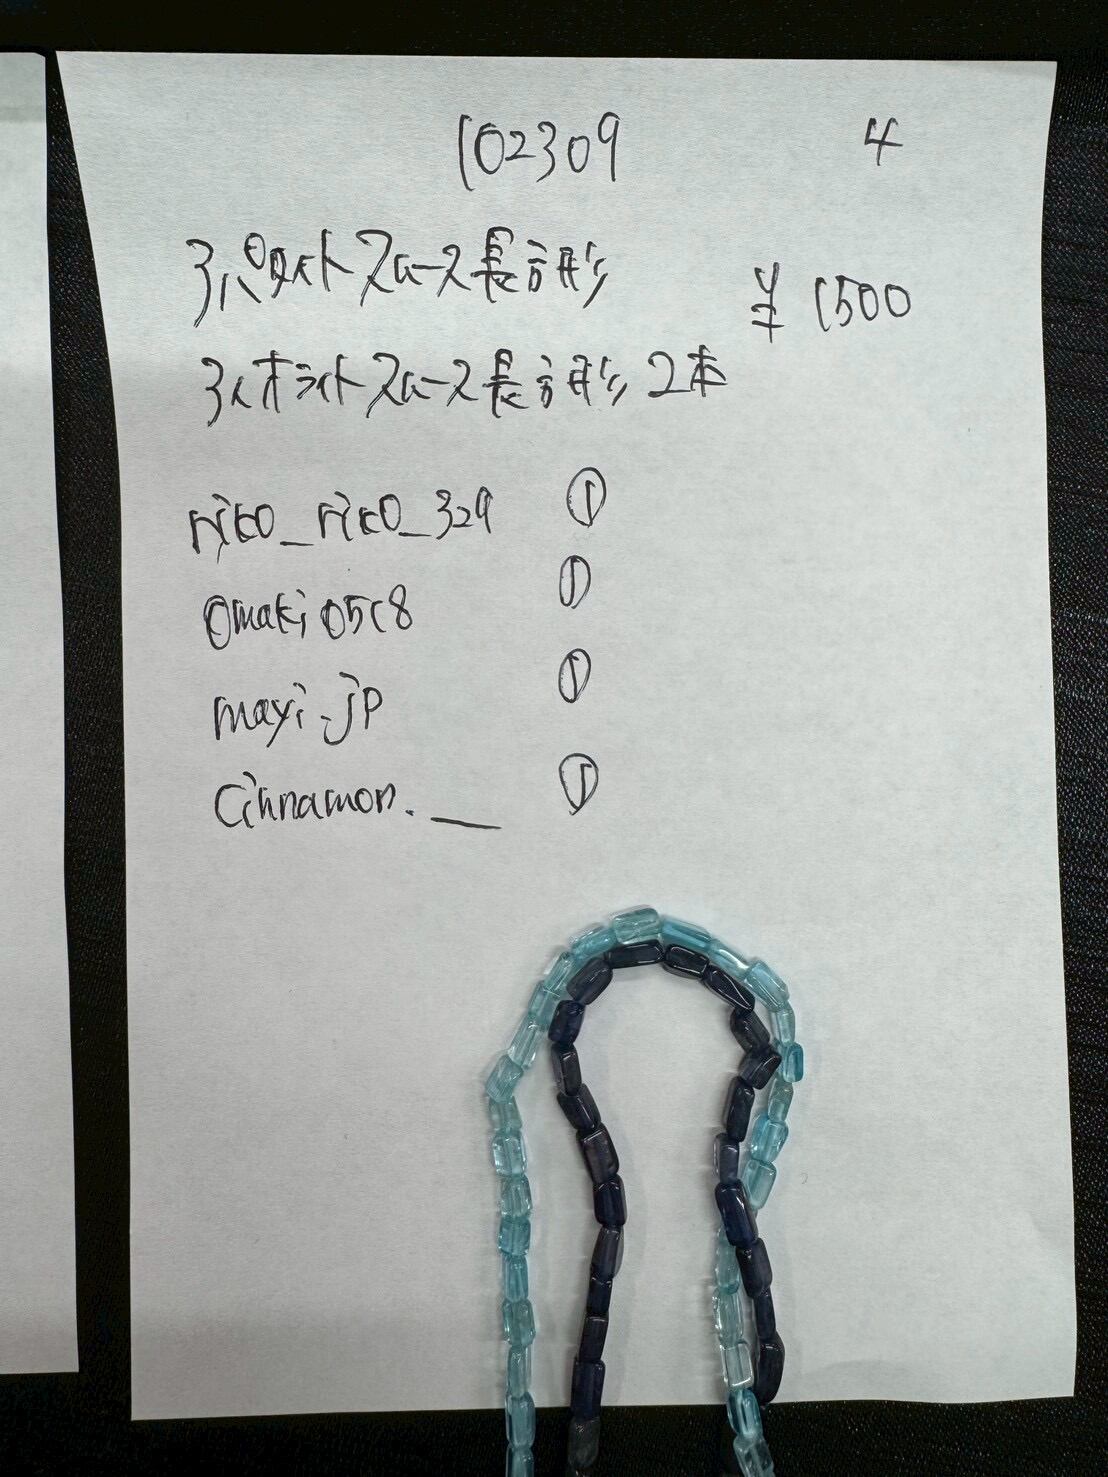 102309 4
3. アパタイト スムース 長方形
¥1500
3. アイオライト スムース 長方形 2本
riko_riko_329 ①
omaki0518 ①
mayi.jp ①
Cinnamon.__ ①